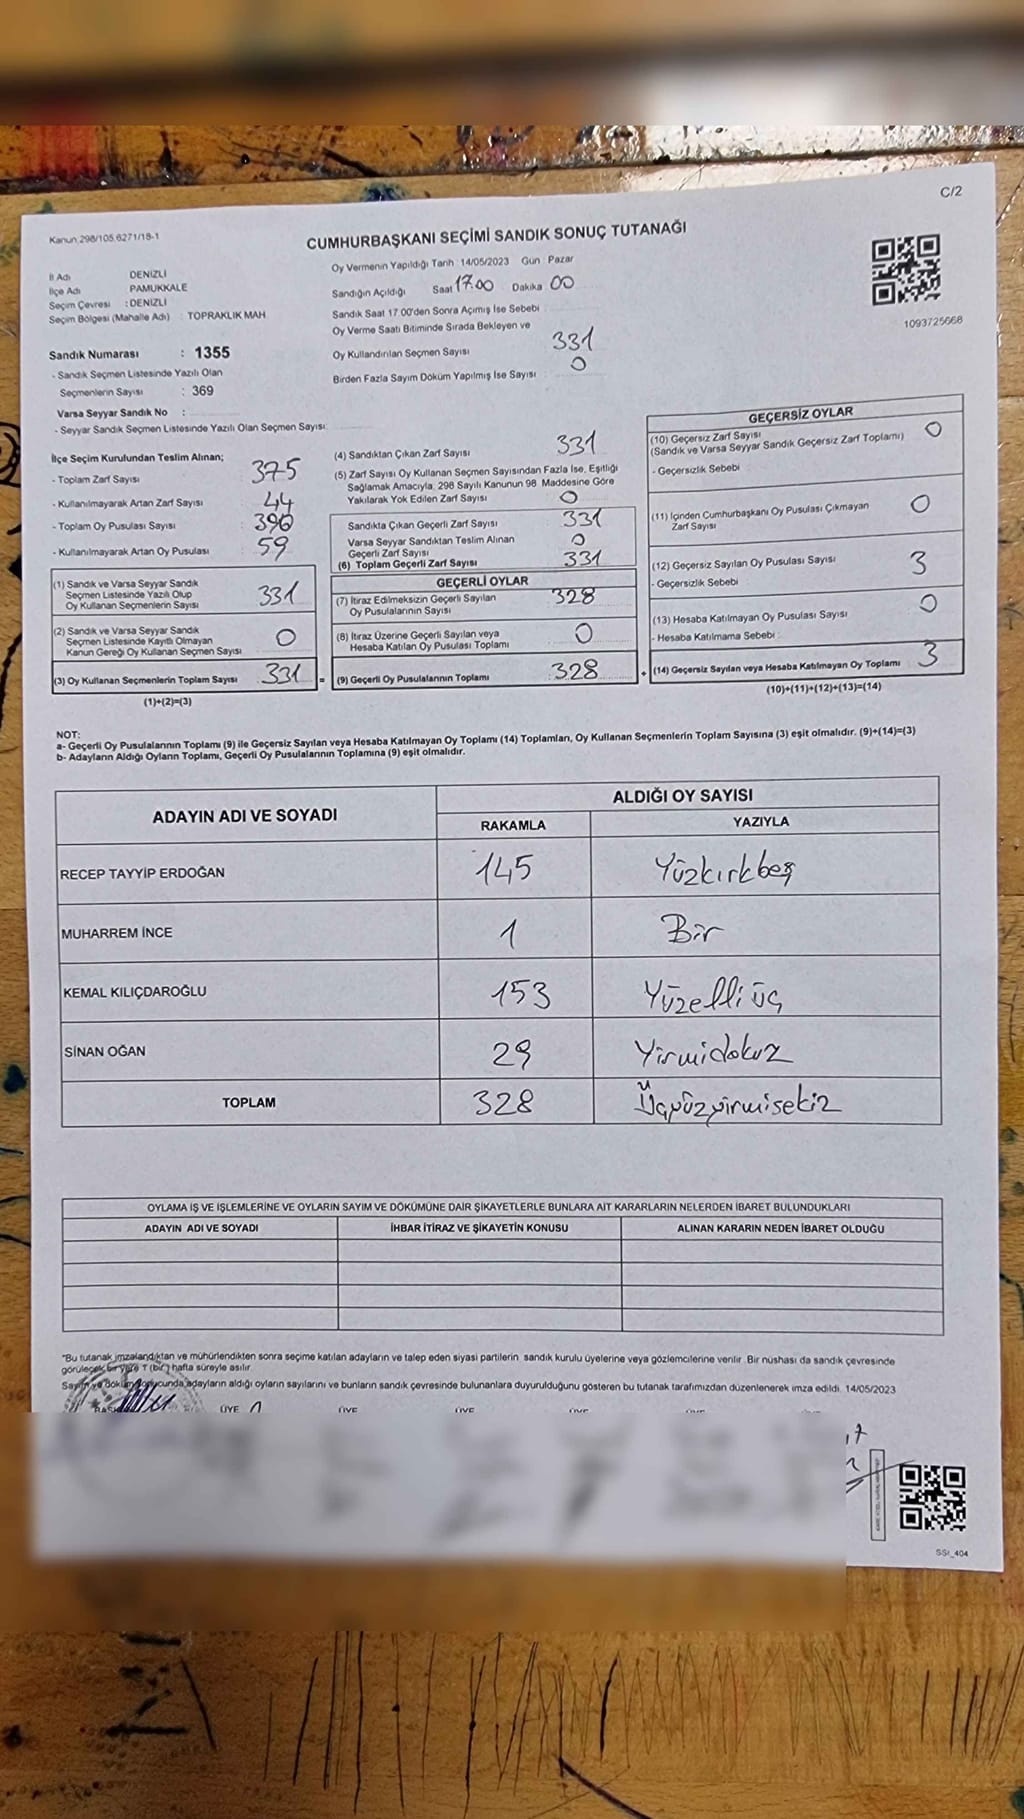 C/2
Kanun:298/105,6271/18-1
CUMHURBAŞKANI SEÇİMİ SANDIK SONUÇ TUTANAĞI
İl Adı DENİZLİ
İlçe Adı PAMUKKALE
Seçim Çevresi : DENİZLİ
Seçim Bölgesi (Mahalle Adı) : TOPRAKLIK MAH
Sandık Numarası : 1355
- Sandık Seçmen Listesinde Yazılı Olan
Seçmenlerin Sayısı : 369
Varsa Seyyar Sandık No :
- Seyyar Sandık Seçmen Listesinde Yazılı Olan Seçmen Sayısı:
Oy Vermenin Yapıldığı Tarih : 14/05/2023 Gün : Pazar
Sandığın Açıldığı Saat 17.00 Dakika 00
Sandık Saat 17.00'den Sonra Açımış İse Sebebi
Oy Verme Saati Bitiminde Sırada Bekleyen ve
Oy Kullandırılan Seçmen Sayısı 331
Birden Fazla Sayım Döküm Yapılmış İse Sayısı 0
1093725668
İlçe Seçim Kurulundan Teslim Alınan;
- Toplam Zarf Sayısı 375
- Kullanılmayarak Artan Zarf Sayısı 44
- Toplam Oy Pusulası Sayısı : 390
- Kullanılmayarak Artan Oy Pusulası : 59
(1) Sandık ve Varsa Seyyar Sandık
Seçmen Listesinde Yazılı Olup
Oy Kullanan Seçmenlerin Sayısı 331
(2) Sandık ve Varsa Seyyar Sandık
Seçmen Listesinde Kayıtlı Olmayan
Kanun Gereği Oy Kullanan Seçmen Sayısı 0
(3) Oy Kullanan Seçmenlerin Toplam Sayısı 331 =
(1)+(2)=(3)
(4) Sandıktan Çıkan Zarf Sayısı 331
(5) Zarf Sayısı Oy Kullanan Seçmen Sayısından Fazla İse, Eşitliği
Sağlamak Amacıyla, 298 Sayılı Kanunun 98. Maddesine Göre
Yakılarak Yok Edilen Zarf Sayısı 0
Sandıkta Çıkan Geçerli Zarf Sayısı 331
Varsa Seyyar Sandıktan Teslim Alınan
Geçerli Zarf Sayısı 0
(6) Toplam Geçerli Zarf Sayısı 331
GEÇERLİ OYLAR
(7) İtiraz Edilmeksizin Geçerli Sayılan
Oy Pusulalarının Sayısı 328
(8) İtiraz Üzerine Geçerli Sayılan veya
Hesaba Katılan Oy Pusulası Toplamı 0
(9) Geçerli Oy Pusulalarının Toplamı 328 +
GEÇERSİZ OYLAR
(10) Geçersiz Zarf Sayısı 0
(Sandık ve Varsa Seyyar Sandık Geçersiz Zarf Toplamı)
- Geçersizlik Sebebi
(11) İçinden Cumhurbaşkanı Oy Pusulası Çıkmayan
Zarf Sayısı 0
(12) Geçersiz Sayılan Oy Pusulası Sayısı 3
- Geçersizlik Sebebi
(13) Hesaba Katılmayan Oy Pusulası Sayısı 0
- Hesaba Katılmama Sebebi
(14) Geçersiz Sayılan veya Hesaba Katılmayan Oy Toplamı 3
(10)+(11)+(12)+(13)=(14)
NOT:
a- Geçerli Oy Pusulalarının Toplamı (9) ile Geçersiz Sayılan veya Hesaba Katılmayan Oy Toplamı (14) Toplamları, Oy Kullanan Seçmenlerin Toplam Sayısına (3) eşit olmalıdır. (9)+(14)=(3)
b- Adayların Aldığı Oyların Toplamı, Geçerli Oy Pusulalarının Toplamına (9) eşit olmalıdır.
ADAYIN ADI VE SOYADI ALDIĞI OY SAYISI
RAKAMLA YAZIYLA
RECEP TAYYİP ERDOĞAN 145 Yüzkırkbeş
MUHARREM İNCE 1 Bir
KEMAL KILIÇDAROĞLU 153 Yüzelliüç
SİNAN OĞAN 29 Yirmidokuz
TOPLAM 328 Üçyüzyirmisekiz
OYLAMA İŞ VE İŞLEMLERİNE VE OYLARIN SAYIM VE DÖKÜMÜNE DAİR ŞİKAYETLERLE BUNLARA AİT KARARLARIN NELERDEN İBARET BULUNDUKLARI
ADAYIN ADI VE SOYADI İHBAR İTİRAZ VE ŞİKAYETİN KONUSU ALINAN KARARIN NEDEN İBARET OLDUĞU
*Bu tutanak imzalandıktan ve mühürlendikten sonra seçime katılan adayların ve talep eden siyasi partilerin sandık kurulu üyelerine veya gözlemcilerine verilir. Bir nüshası da sandık çevresinde
görülecek bir yere 1 (bir) hafta süreyle asılır.
Sayım ve döküm sonucunda adayların aldığı oyların sayılarını ve bunların sandık çevresinde bulunanlara duyurulduğunu gösteren bu tutanak tarafımızdan düzenlenerek imza edildi. 14/05/2023
ÜYE ÜYE ÜYE ÜYE
SSI_404